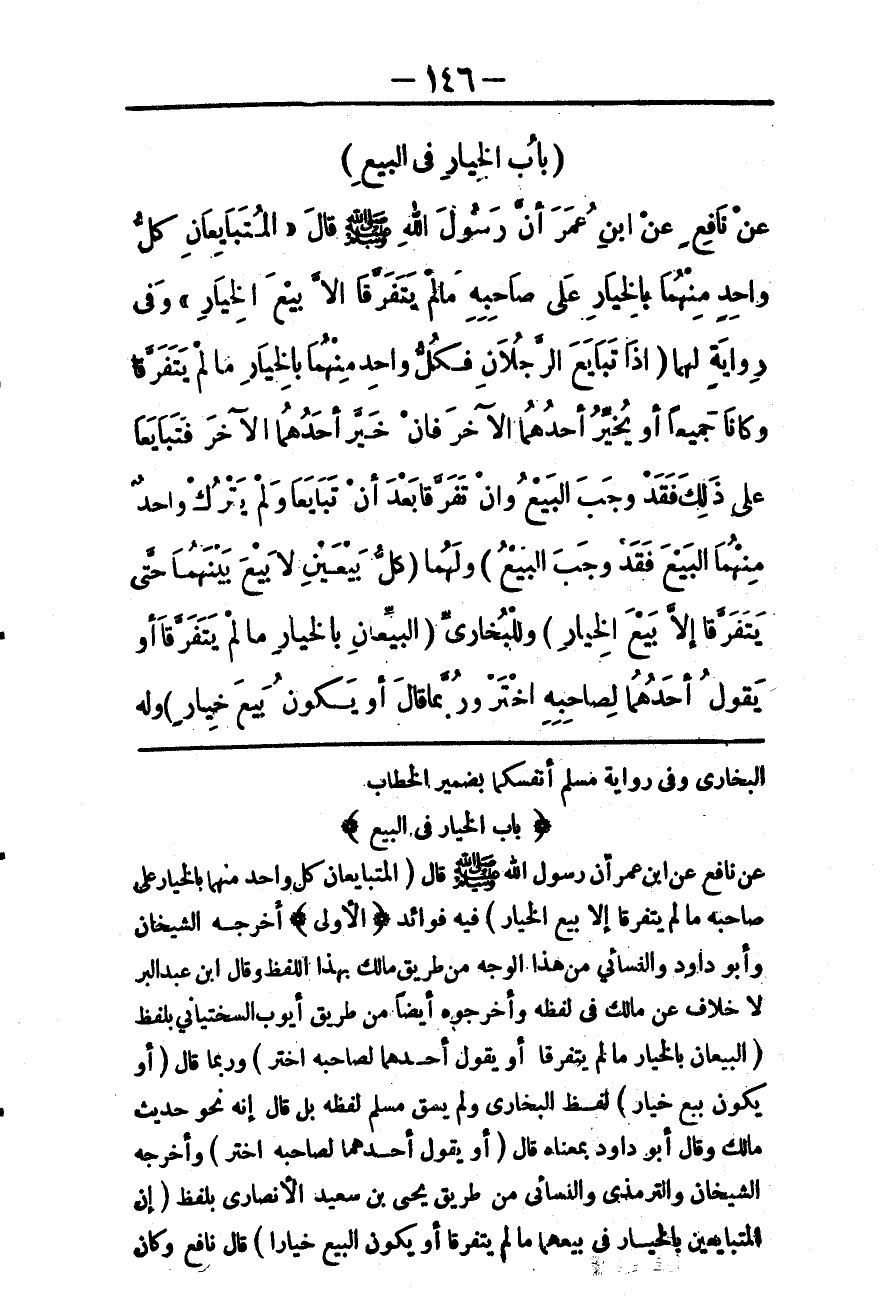 — ١٤٦ —
( بابُ الخِيارِ فى البيعِ )
عنْ نَافِعٍ عنْ ابنِ عُمَرَ أنَّ رَسُولَ اللهِ ﷺ قالَ « المُتَبَايِعَانِ كلُّ
واحِدٍ مِنْهُمَا بالِخيَارِ عَلَى صَاحِبِهِ مَالمْ يَتَفَرَّقَا الاَّ بَيْعَ الخِيَارِ » وَفى
رِوايَةٍ لهما ( اذَا تَبَايَعَ الرَّجُلاَنِ فَكُلُّ واحِدٍ مِنْهُمَا بالِخيَارِ مَا لمْ يَتَفَرَّقَا
وكانَا جَميعاً أو يُخيِّرُ أحدُهُمَا الآخرَ فانْ خَيَّرَ أحَدُهُمَا الآخرَ فَتَبَايَعَا
على ذَلِكَ فَقَدْ وجَبَ البَيْعُ وانْ تَفَرَّقا بَعْدَ أنْ تَبَايَعَا وَلمْ يَتْرُكْ واحدٌ
مِنْهُمَا البَيْعَ فَقَدْ وجَبَ البَيْعُ ) ولَهُما ( كلُّ بَيْعَيْنِ لاَ بَيْعَ بَيْنَهُمَا حتَّى
يَتَفَرَّقا إلاَّ بَيْعَ الخِيارِ ) وللْبُخارىِّ ( البيِّعانِ بالخيارِ ما لمْ يَتَفَرَّقَا أو
يَقولُ أحَدُهُمَا لِصاحِبِهِ اخْتَرْ ورُبَّما قالَ أو يَكونُ بَيعَ خِيارٍ ) وله
البخارى وفى رواية مسلم أنفسكما بضمير الخطاب
﴿ باب الخيار فى البيع ﴾
عن نافع عن ابن عمر أن رسول الله ﷺ قال ( المتبايعان كل واحد منهما بالخيار على
صاحبه ما لم يتفرقا إلا بيع الخيار ) فيه فوائد ﴿ الأولى ﴾ أخرجه الشيخان
وأبو داود والنسائي من هذا الوجه من طريق مالك بهذا اللفظ وقال ابن عبدالبر
لا خلاف عن مالك فى لفظه وأخرجوه أيضاً من طريق أيوب السختياني بلفظ
( البيعان بالخيار ما لم يتفرقا أو يقول أحدهما لصاحبه اختر ) وربما قال ( أو
يكون بيع خيار ) لفظ البخارى ولم يسق مسلم لفظه بل قال إنه نحو حديث
مالك وقال أبو داود بمعناه قال ( أو يقول أحدهما لصاحبه اختر ) وأخرجه
الشيخان والترمذى والنسائى من طريق يحيى بن سعيد الأنصارى بلفظ ( إن
المتبايعين بالخيار فى بيعهما ما لم يتفرقا أو يكون البيع خيارا ) قال نافع وكان